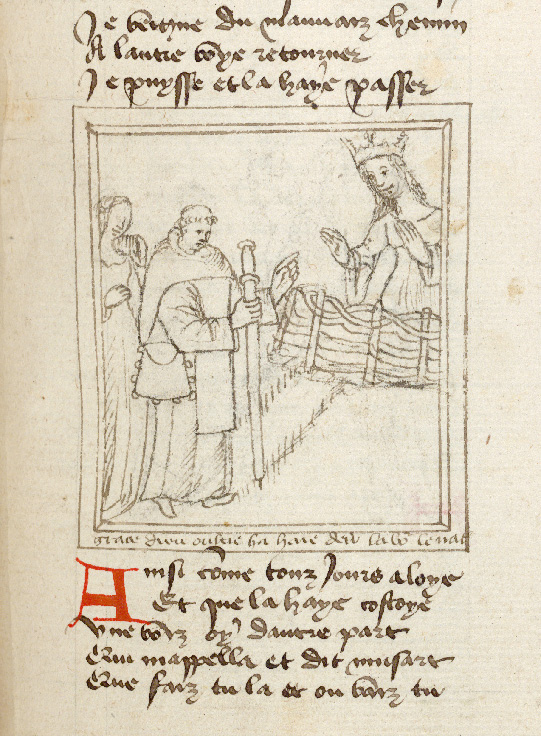 Je vertine du mauuaiz chemin
A lautre voye retourner
Je puysse et la haye passer
grace dieu oultre la haie
Ainsi cōme touz Jours aloye
Et que la haye costoye
Vne voiz oy dautre part
Qui mappella et dit musart
Que faiz tu la et ou vaiz tu